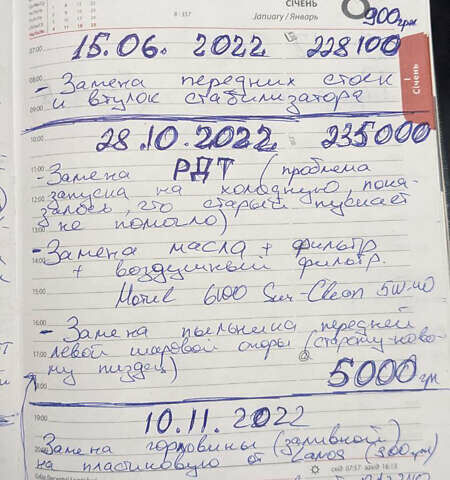 СІЧЕНЬ
8 · 357
January / Январь
900 грн
07:00
15.06. 2022 228100
08:00
- Замена передних стоек
09:00
и втулок стабилизатора
1
Січень
10:00
28.10.2022 235000
11:00
- Замена РДТ (проблема
запуска на холодную, пока-
12:00
залось, что старый пускает
13:00
не помогло)
- Замена масла + фильтр
14:00
+ воздушный фильтр.
15:00
Motul 6100 Syn-Clean 5W-40
16:00
- Замена пыльника передней
17:00
левой шаровой опоры (старому-ново-
му пиздец)
18:00
5000 грн
19:00
10.11.2022
Замена горловины (заливной)
20:00
на пластиковую от Lanos (300грн)
схід 07:57 захід 16:13